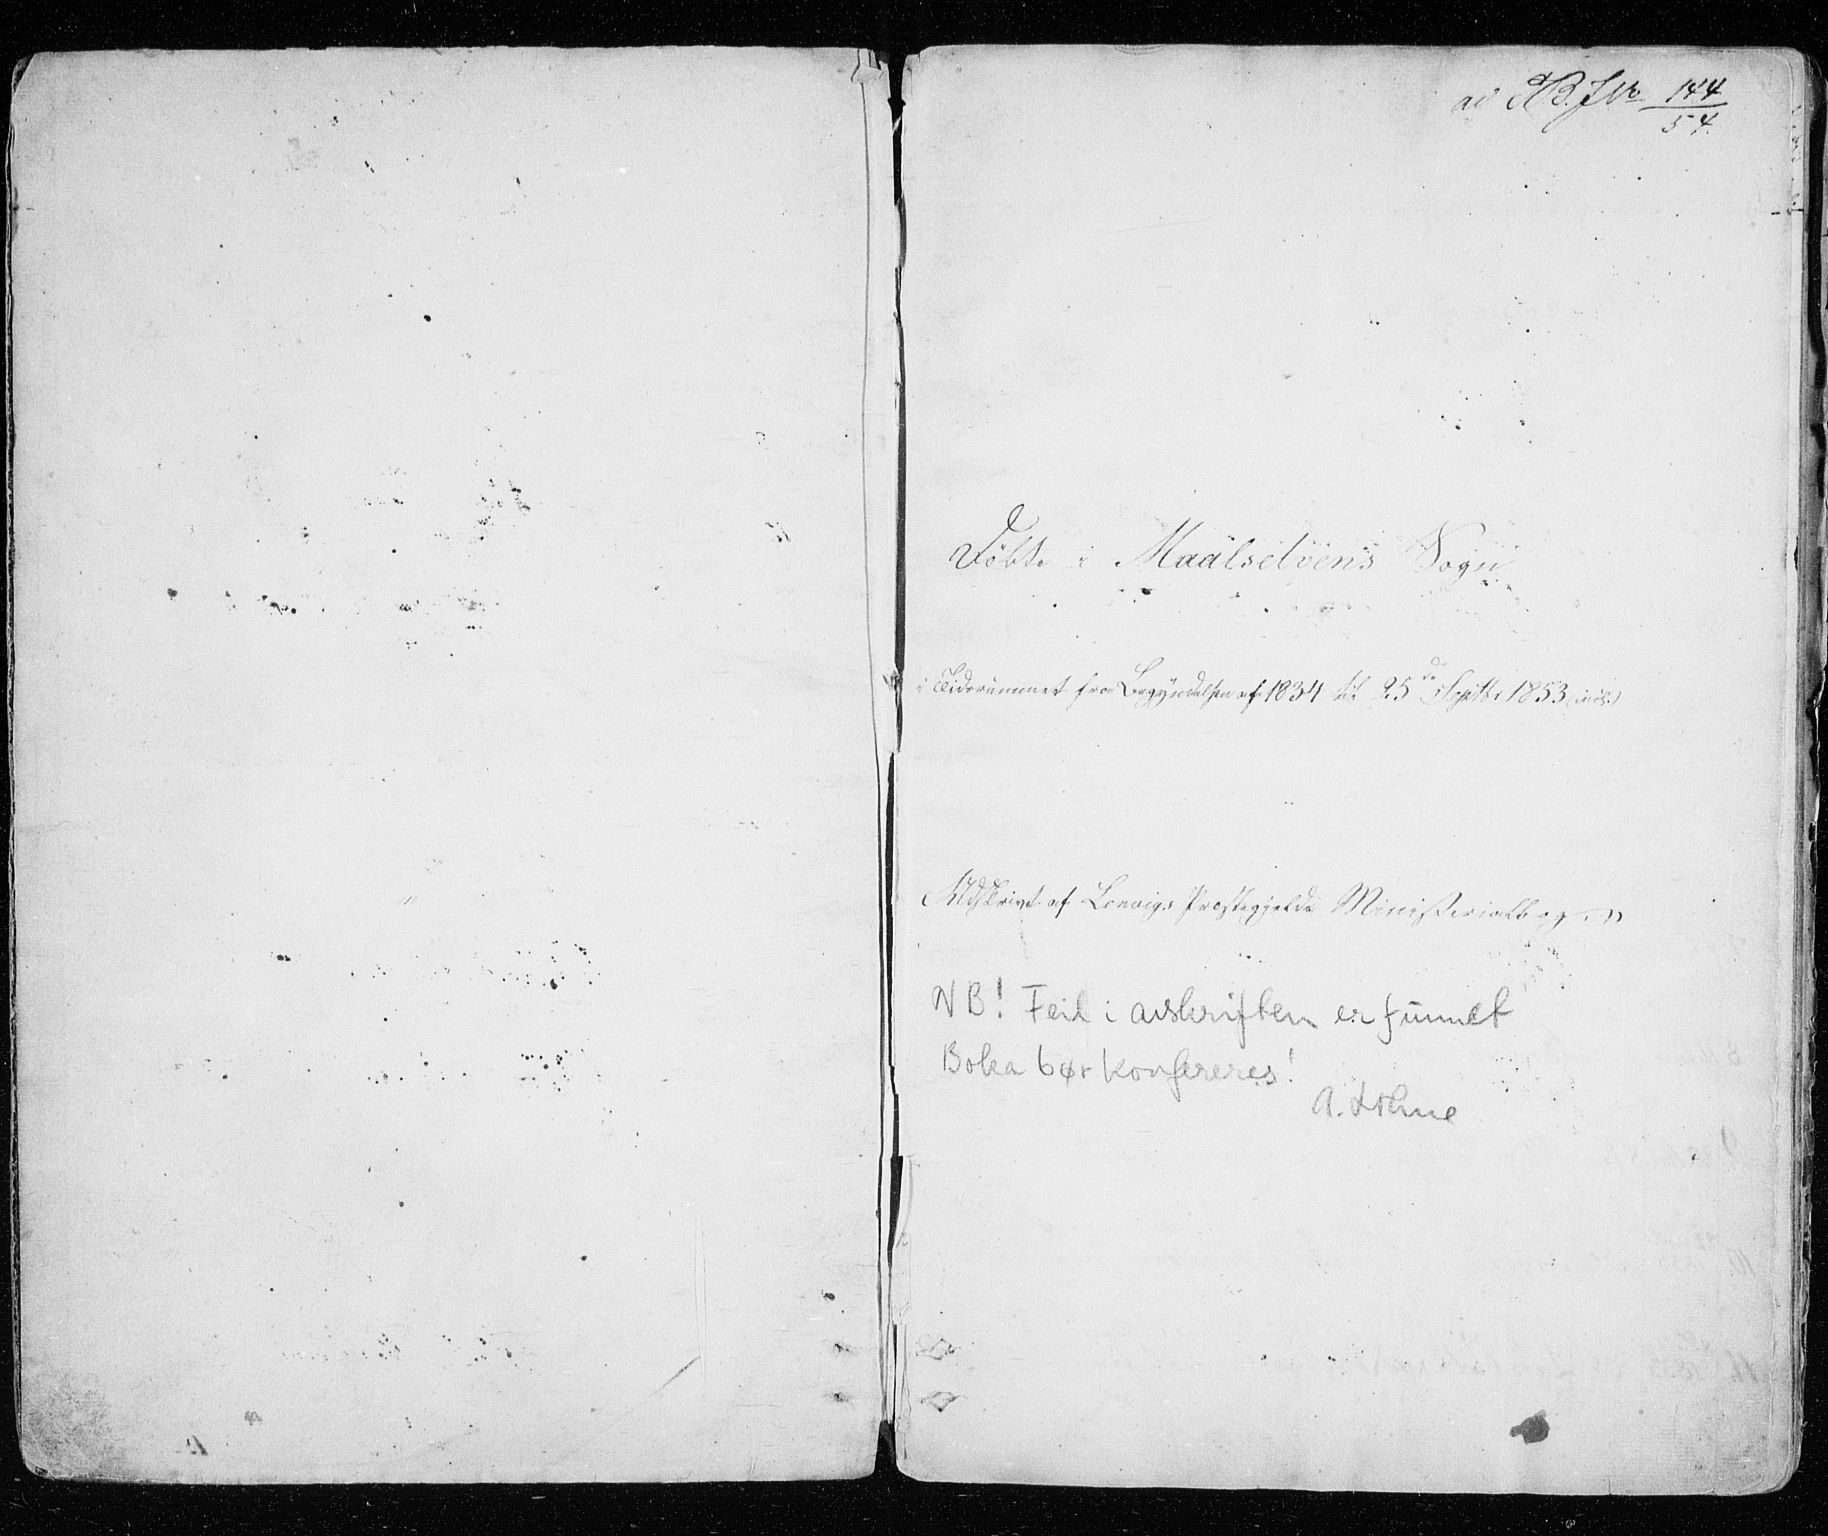 ad B. J No 144/54
Døbte i Maalselvens Sogn
i Tidsrummet fra Begyndelsen af 1834 til 25de Septbr 1853 (incl.)
Udskrivt af Lenvigs Præstegjelds Ministerialbog
NB! Feil i avskriften er funnet
Boka bør konfereres!
A.